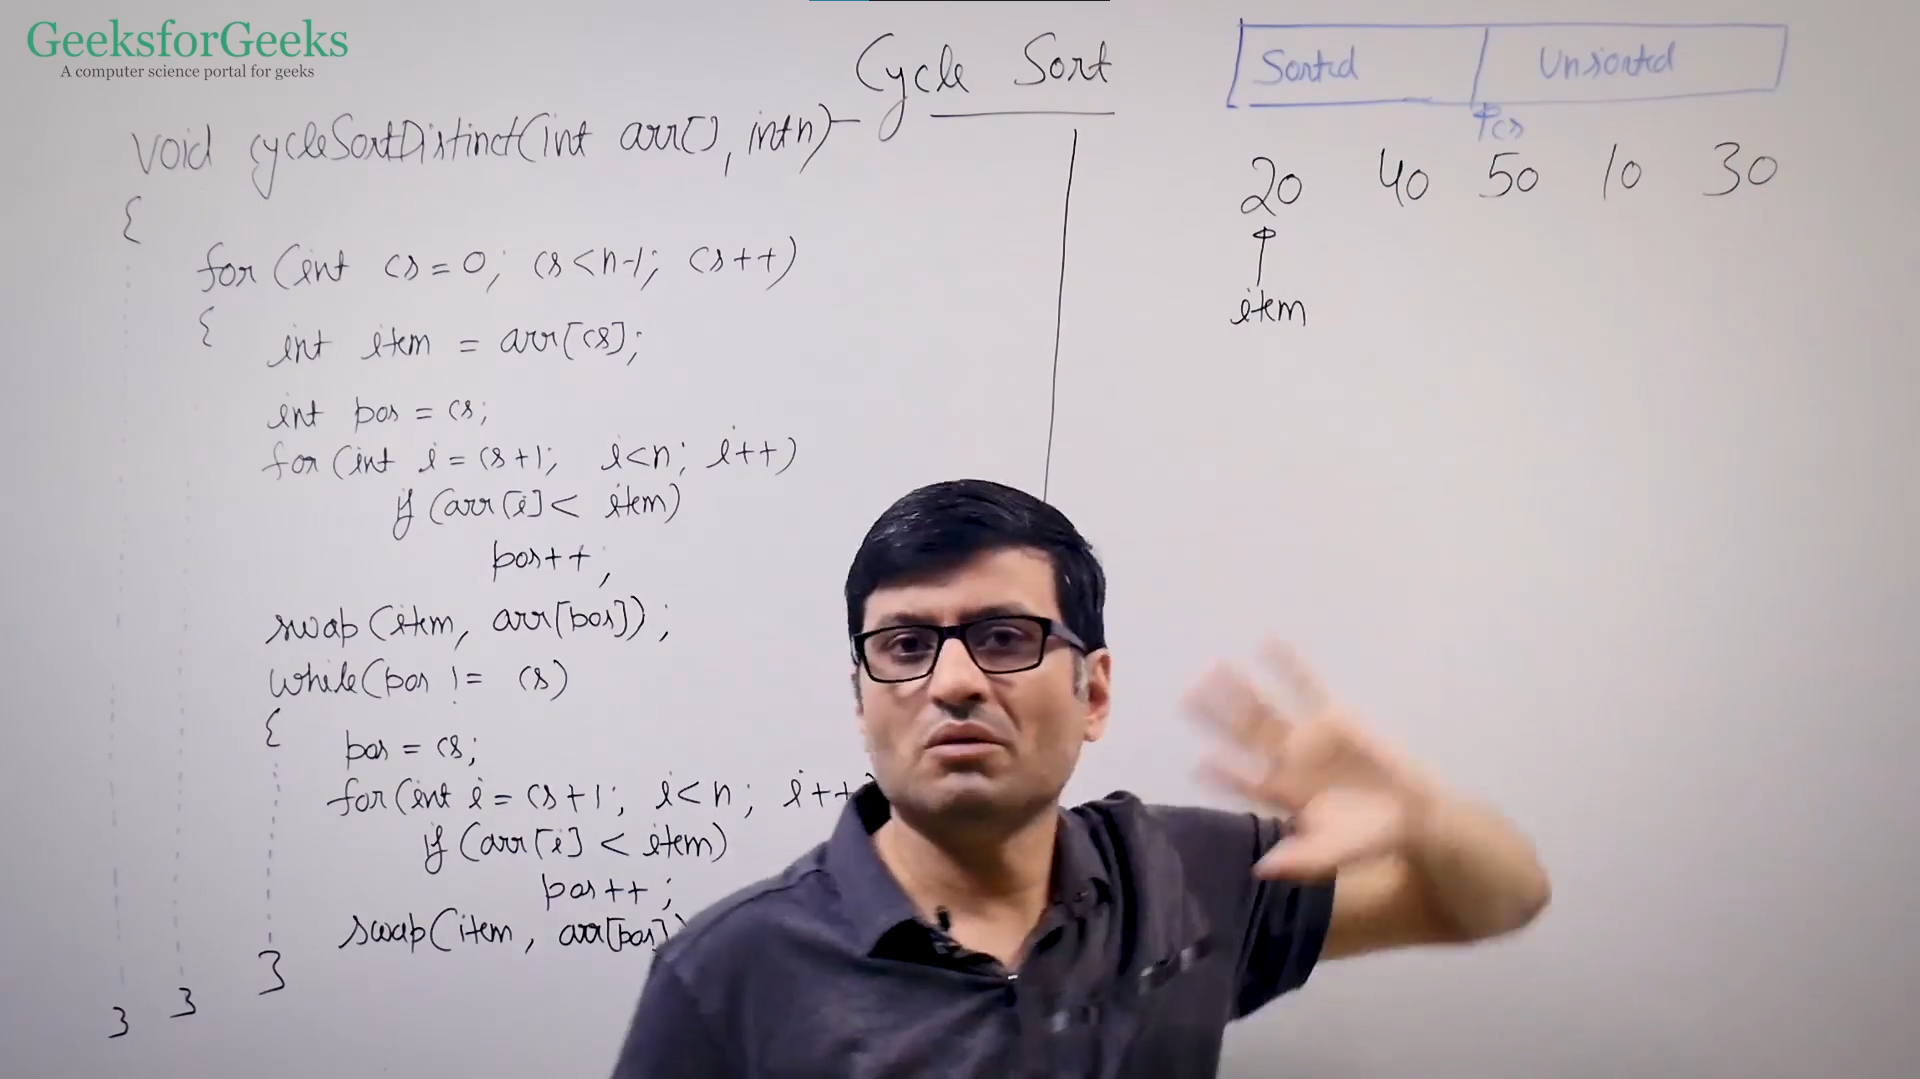 GeeksforGeeks
A computer science portal for geeks
Cycle Sort
void cycleSortDistinct(int arr[], int n)
{
for (int cs = 0; cs < n-1; cs++)
{
int item = arr[cs];
int pos = cs;
for (int i = cs+1; i<n; i++)
if (arr[i] < item)
pos++;
swap(item, arr[pos]);
while(pos != cs)
{
pos = cs;
for(int i = cs+1; i<n; i++
if (arr[i] < item)
pos++;
swap(item, arr[pos])
}
}
}
Sorted Unsorted
cs
20 40 50 10 30
item